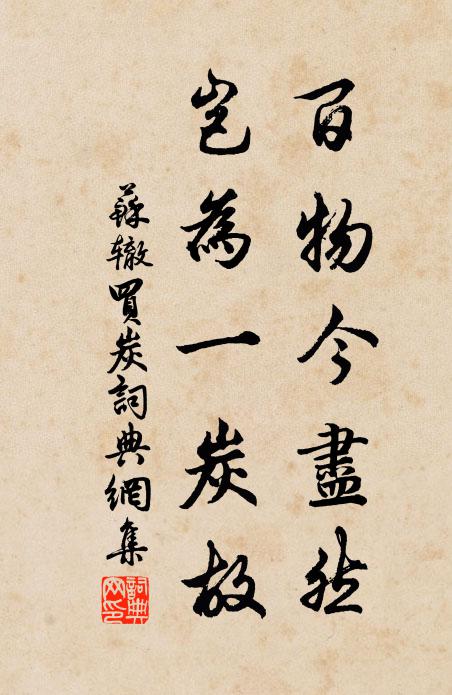 百物今盡然
豈為一炭故
蘇辙買炭詞典網集
詞典網印